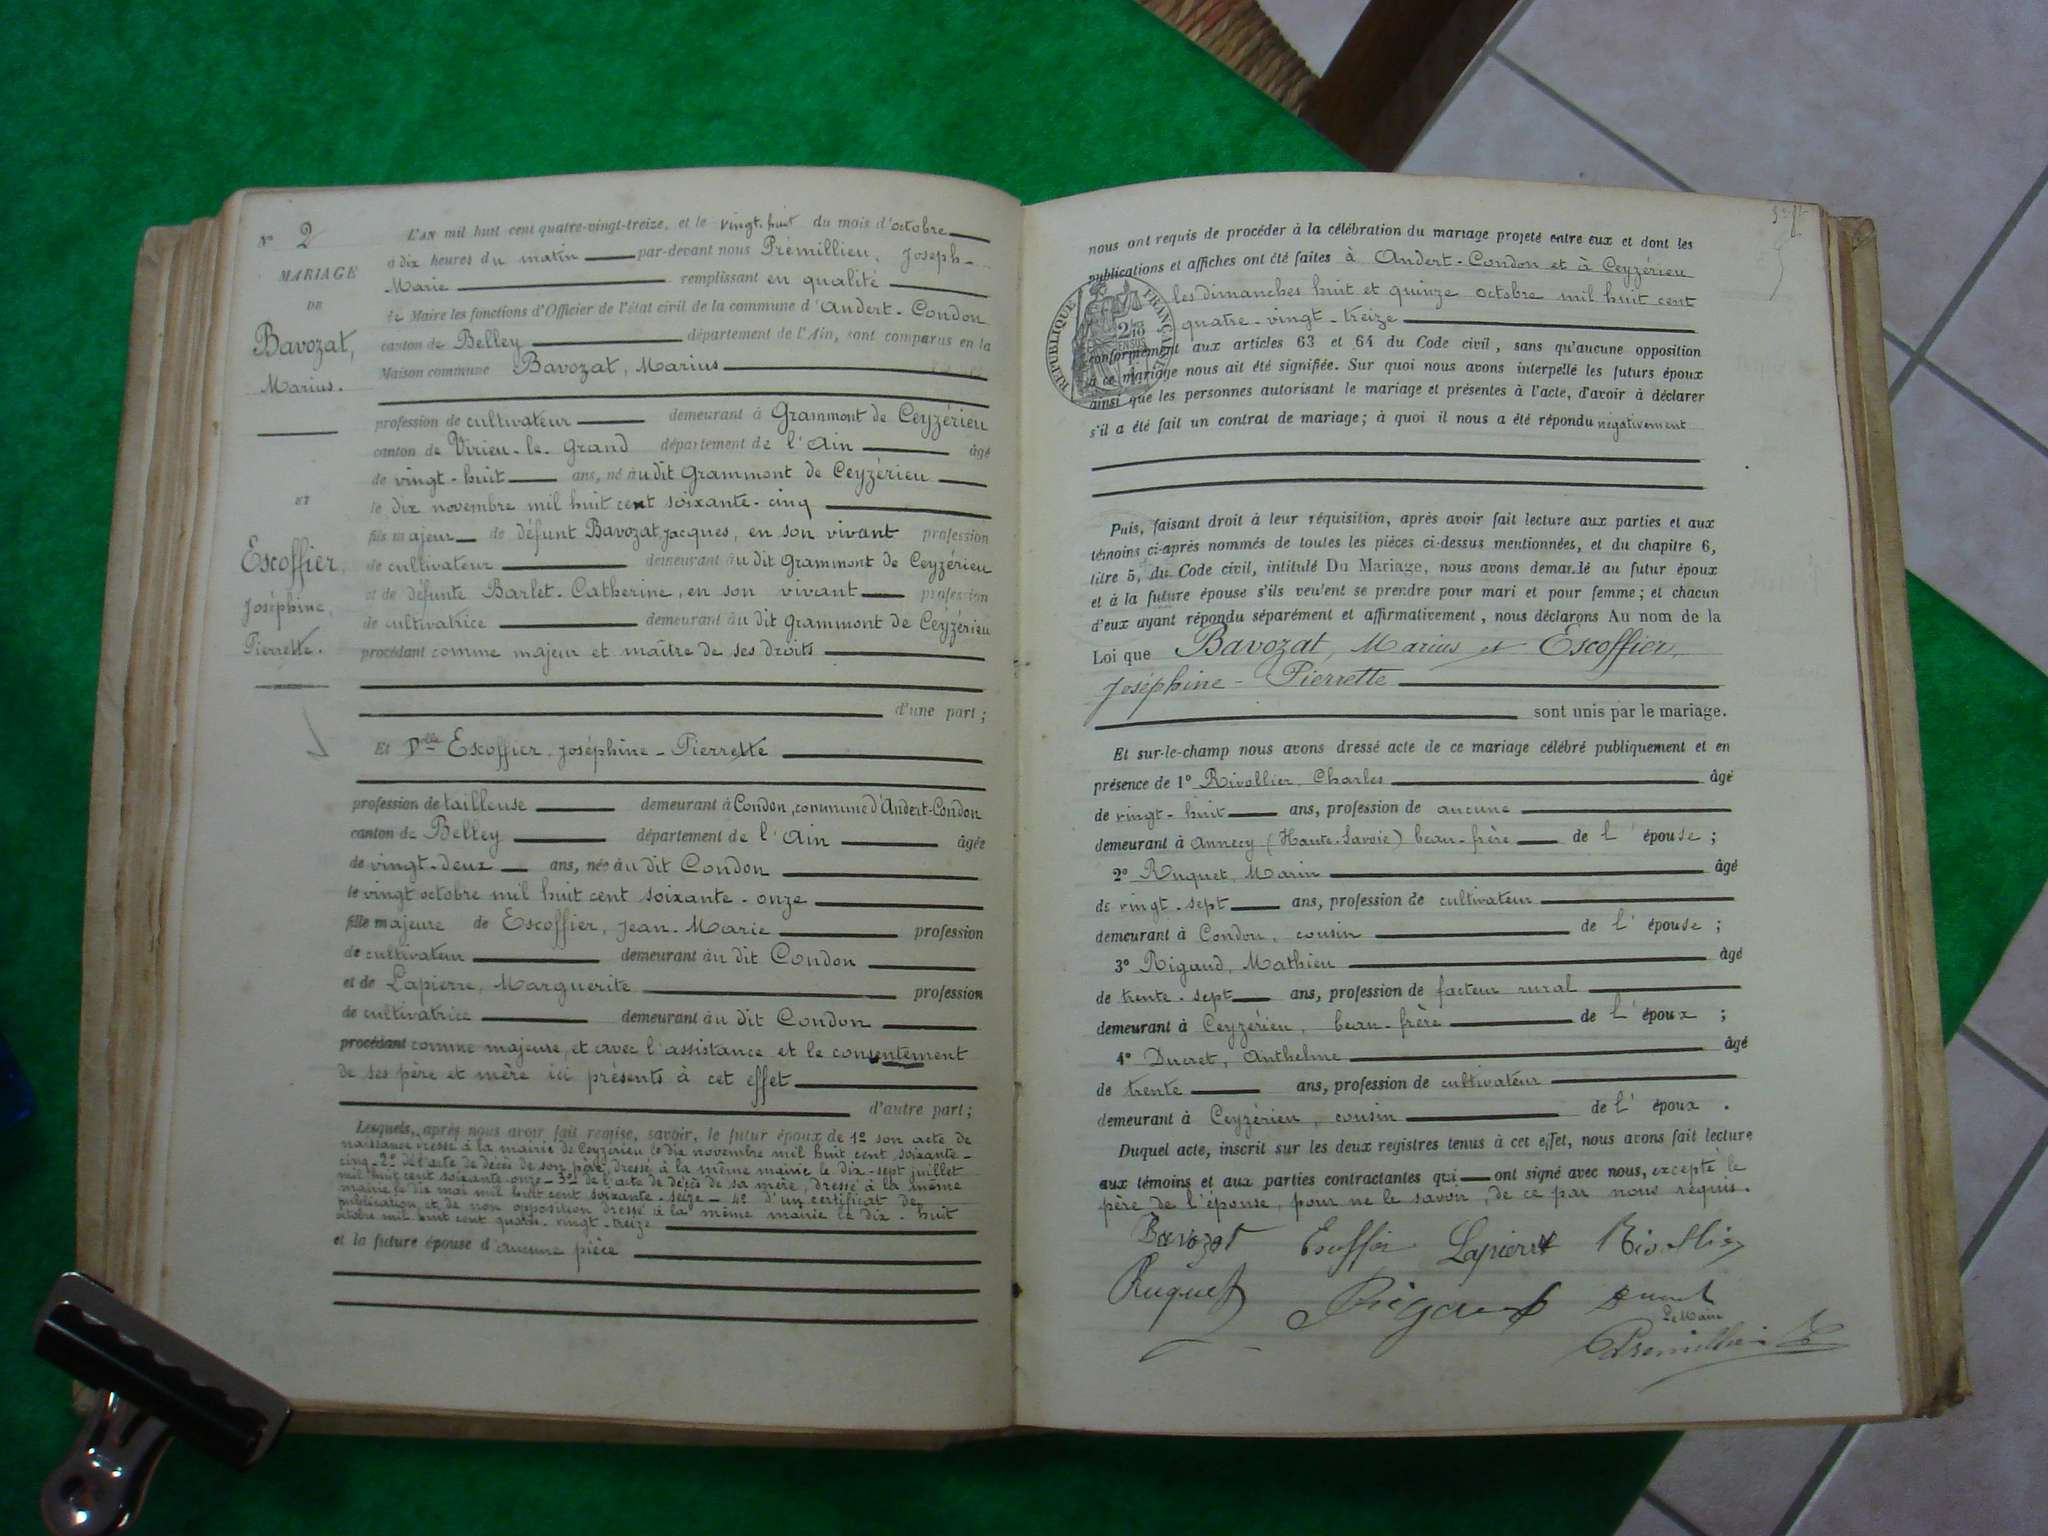 N° 2
MARIAGE
DE
Bavozat,
Marius.
ET
Escoffier,
Joséphine,
Pierrette.
L'AN mil huit cent quatre-vingt-treize, et le vingt-huit du mois d'octobre
à dix heures du matin par-devant nous Prémillieu, Joseph-
Marie remplissant en qualité
de Maire les fonctions d'Officier de l'état civil de la commune d'Andert-Condon
canton de Belley département de l'Ain, sont comparus en la
Maison commune Bavozat, Marius
profession de cultivateur demeurant à Grammont de Ceyzérieu
canton de Virieu-le-Grand département de l'Ain âgé
de vingt-huit ans, né àudit Grammont de Ceyzérieu
le dix novembre mil huit cent soixante-cinq
fils majeur de défunt Bavozat Jacques, en son vivant profession
de cultivateur demeurant àu dit Grammont de Ceyzérieu
et de défunte Barlet-Catherine, en son vivant profession
de cultivatrice demeurant àu dit Grammont de Ceyzérieu
procédant comme majeur et maître de ses droits
d'une part ;
Et Dlle Escoffier, Joséphine-Pierrette
profession de tailleuse demeurant à Condon, commune d'Andert-Condon
canton de Belley département de l'Ain âgée
de vingt-deux ans, née àu dit Condon
le vingt octobre mil huit cent soixante-onze
fille majeure de Escoffier, Jean-Marie profession
de cultivateur demeurant àu dit Condon
et de Lapierre, Marguerite profession
de cultivatrice demeurant àu dit Condon
procédant comme majeure, et avec l'assistance et le consentement
de ses père et mère ici présents à cet effet
d'autre part ;
Lesquels, après nous avoir fait remise, savoir, le futur époux de 1° son acte de
naissance dressé à la mairie de Ceyzérieu le dix novembre mil huit cent soixante-
cinq - 2° de l'acte de décès de son père, dressé à la même mairie le dix-sept juillet
mil huit cent soixante-onze - 3° de l'acte de décès de sa mère, dressé à la même
mairie le dix mai mil huit cent soixante-seize - 4° d'un certificat de
publication et de non opposition dressé à la même mairie le dix-huit
octobre mil huit cent quatre-vingt-treize
et la future épouse d'aucune pièce
nous ont requis de procéder à la célébration du mariage projeté entre eux et dont les
publications et affiches ont été faites à Andert-Condon et à Ceyzérieu
les dimanches huit et quinze octobre mil huit cent
quatre-vingt-treize
RÉPUBLIQUE FRANÇAISE
conformément aux articles 63 et 64 du Code civil, sans qu'aucune opposition
à ce mariage nous ait été signifiée. Sur quoi nous avons interpellé les futurs époux
ainsi que les personnes autorisant le mariage et présentes à l'acte, d'avoir à déclarer
s'il a été fait un contrat de mariage ; à quoi il nous a été répondu négativement
Puis, faisant droit à leur réquisition, après avoir fait lecture aux parties et aux
témoins ci-après nommés de toutes les pièces ci-dessus mentionnées, et du chapitre 6,
titre 5, du Code civil, intitulé Du Mariage, nous avons demandé au futur époux
et à la future épouse s'ils veulent se prendre pour mari et pour femme ; et chacun
d'eux ayant répondu séparément et affirmativement, nous déclarons Au nom de la
Loi que Bavozat, Marius et Escoffier,
Joséphine-Pierrette
sont unis par le mariage.
Et sur-le-champ nous avons dressé acte de ce mariage célébré publiquement et en
présence de 1° Rivollier, Charles âgé
de vingt-huit ans, profession de aucune
demeurant à Annecy (Haute-Savoie) beau-frère de l'épouse ;
2° Ruguet, Marin âgé
de vingt-sept ans, profession de cultivateur
demeurant à Condon, cousin de l'épouse ;
3° Rigaud, Mathieu âgé
de trente-sept ans, profession de facteur rural
demeurant à Ceyzérieu, beau-frère de l'époux ;
4° Ducret, Anthelme âgé
de trente ans, profession de cultivateur
demeurant à Ceyzérieu, cousin de l'époux.
Duquel acte, inscrit sur les deux registres tenus à cet effet, nous avons fait lecture
aux témoins et aux parties contractantes qui ont signé avec nous, excepté le
père de l'épouse, pour ne le savoir, de ce par nous requis.
Bavozat Escoffier Lapierre Rivollier
Ruguet Rigaud Ducret
Le Maire
Prémillieu